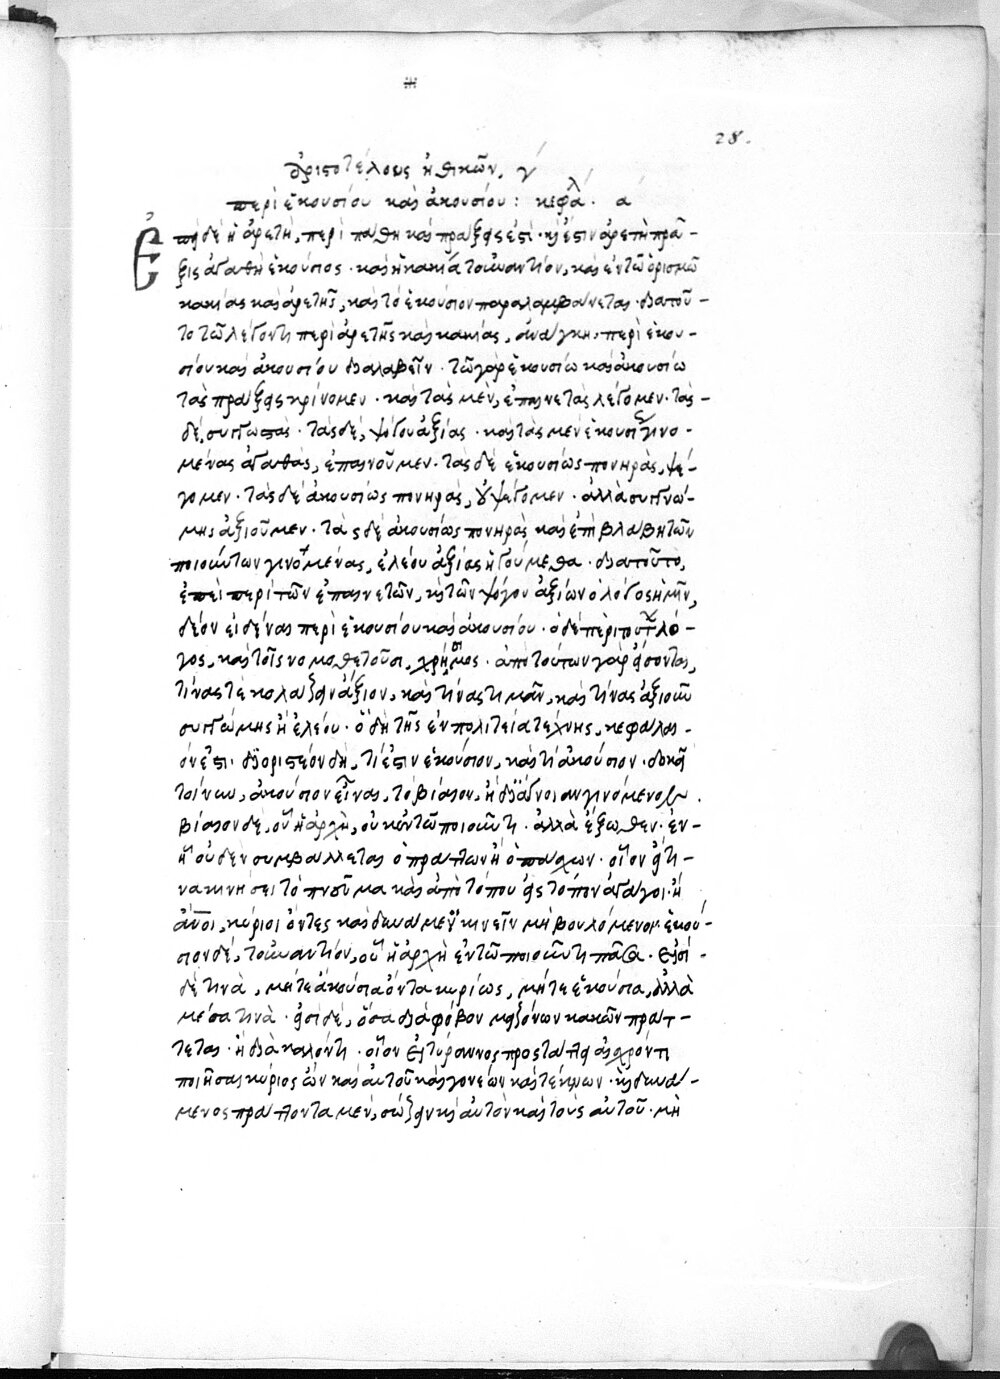 28.
ἀριστοτέλους ἠθικῶν. γ
περὶ ἑκουσίου καὶ ἀκουσίου: κεφάλ. α
Ἐπεὶ δὲ ἡ ἀρετὴ, περὶ πάθη καὶ πράξεις ἐστὶ· καὶ ἔστιν ἀρετὴ πρᾶ-
ξις ἀγαθὴ ἑκούσιος· καὶ ἡ κακία τοὐναντίον, καὶ ἐν τῶ ὁρισμῶ
κακίας καὶ ἀρετῆς, καὶ τὸ ἑκούσιον παραλαμβάνεται· διατοῦ-
το τῶ λέγοντι περὶ ἀρετῆς καὶ κακίας, ἀνάγκη, περὶ ἑκου-
σίου καὶ ἀκουσίου διαλαβεῖν· τῶ γὰρ ἑκουσίω καὶ ἀκουσίω
τὰς πράξεις κρίνομεν· καὶ τὰς μὲν, ἐπαινετὰς λέγομεν· τὰς
δὲ, συγγνωστάς· τὰς δὲ, ψόγου ἀξίας· καὶ τὰς μὲν ἑκουσίως γινο-
μένας ἀγαθὰς, ἐπαινοῦμεν· τὰς δὲ ἑκουσίως πονηρὰς, ψέ-
γομεν· τὰς δὲ ἀκουσίως πονηρὰς, οὐ ψέγομεν· ἀλλὰ συγγνώ-
μης ἀξιοῦμεν· τὰς δὲ ἀκουσίως πονηρὰς καὶ ἐπὶ βλάβη τῶν
ποιούντων γινομένας, ἐλέου ἀξίας ἡγούμεθα· διατοῦτο,
ἐπεὶ περὶ τῶν ἐπαινετῶν, καὶ τῶν ψόγου ἀξίων ὁ λόγος ἡμῖν,
δέον εἰδέναι περὶ ἑκουσίου καὶ ἀκουσίου· ὁ δὲ περὶ τούτων λό-
γος, καὶ τοῖς νομοθετοῦσι, χρήσιμος· ἀπὸ τούτων γὰρ εἴσονται,
τίνας τὲ κολάζειν ἄξιον, καὶ τίνας τιμᾶν, καὶ τίνας ἀξιοῦν
συγγνώμης ἢ ἐλέου· ὃ δὴ τῆς ἐν πολιτεία τέχνης, κεφάλαι-
όν ἐστι· διοριστέον δὴ, τί ἐστιν ἑκούσιον, καὶ τί ἀκούσιον· δοκεῖ
τοίνυν, ἀκούσιον εἶναι, τὸ βίαιον, ἢ δι' ἄγνοιαν γινόμενον.
βίαιον δὲ, οὗ ἡ ἀρχὴ, οὐκ ἐν τῶ ποιοῦντι· ἀλλὰ ἔξωθεν· ἐν
ἧ οὐδὲν συμβάλλεται ὁ πράττων ἢ ὁ πάσχων· οἷον εἴ τι-
να κινήσει τὸ πνεῦμα καὶ ἀπὸ τόπου εἰς τόπον ἀπάγοι· ἢ
ἄνοι, κύριοι ὄντες καὶ δυνάμενοι κινεῖν μὴ βουλόμενον· ἑκού-
σιον δὲ, τοὐναντίον, οὗ ἡ ἀρχὴ ἐν τῶ ποιοῦντι πᾶσα· εἰσὶ
δέ τινὰ, μήτε ἀκούσια ὄντα κυρίως, μήτε ἑκούσια, ἀλλὰ
μέσα τινὰ· εἰσὶ δὲ, ὅσα διὰ φόβον μειζόνων κακῶν πράτ-
τεται· ἢ διὰ καλόν τι· οἷον εἰ τύραννος προστάττει αἰσχρόν τι
ποιῆσαι κύριος ὢν καὶ αὐτοῦ καὶ γονέων καὶ τέκνων· καὶ δυνά-
μενος πράττοντα μὲν, σώζειν καὶ αὐτὸν καὶ τοὺς αὐτοῦ· μὴ